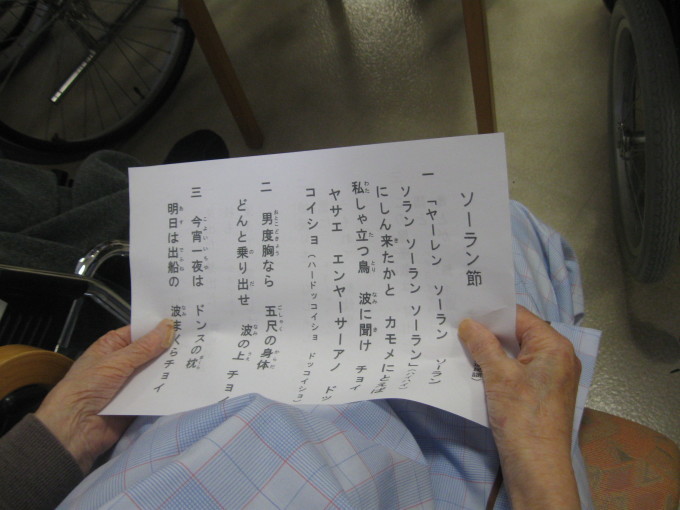 ソーラン節
一 「ヤーレン ソーラン ソーラン
ソラン ソーラン ソーラン」(ハイハイ)
にしん来たかと カモメにとえば
私しゃ立つ鳥 波に聞け チョイ
ヤサエ エンヤーサーアノ ドッ
コイショ(ハードッコイショ ドッコイショ)
二 男度胸なら 五尺の身体
どんと乗り出せ 波の上 チョイ
三 今宵一夜は ドンスの枕
明日は出船の 波まくらチョイ